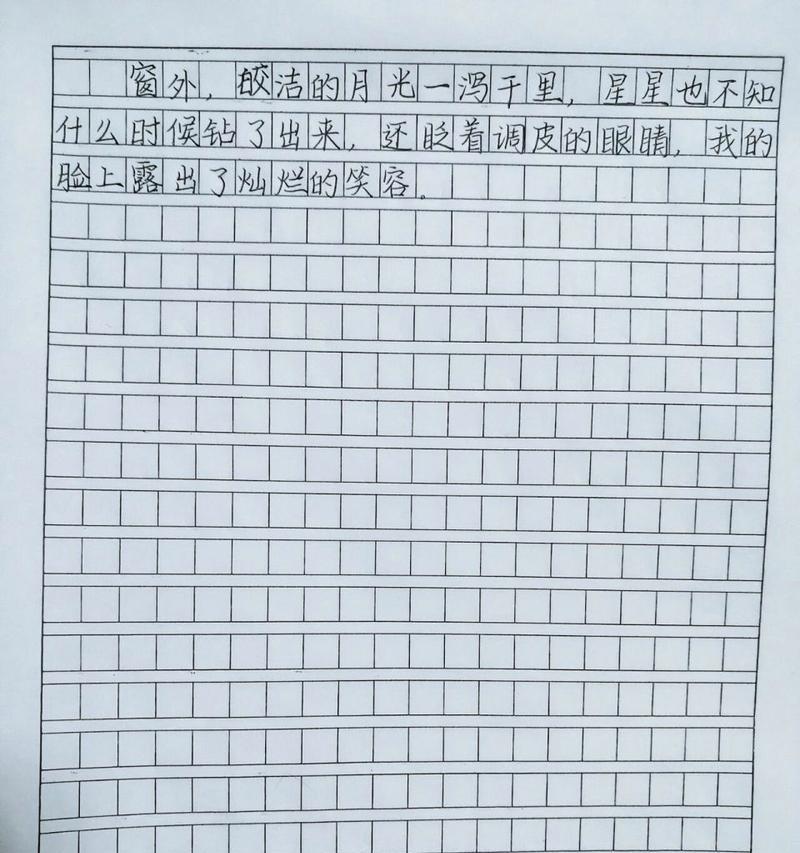 窗外，皎洁的月光一泻千里，星星也不知
什么时候钻了出来，还眨着调皮的眼睛，我的
脸上露出了灿烂的笑容。